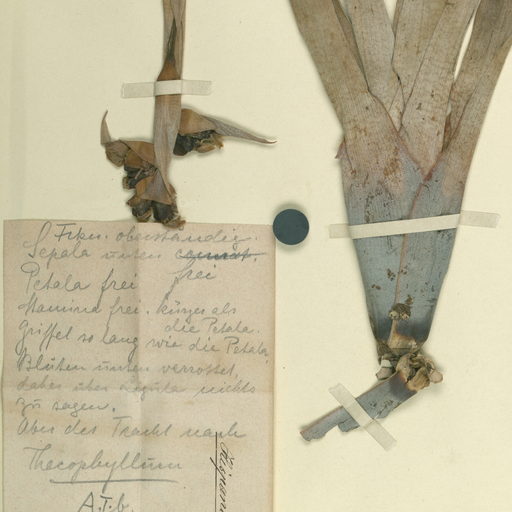 Frkn. oberständig.
Sepala unten connat.
frei
Petala frei
Stamina frei. kürzer als
die Petala.
Griffel so lang wie die Petala,
Blüten unten verrottet,
daher über ligula nichts
zu sagen.
Aber der Tracht nach
Thecophyllum